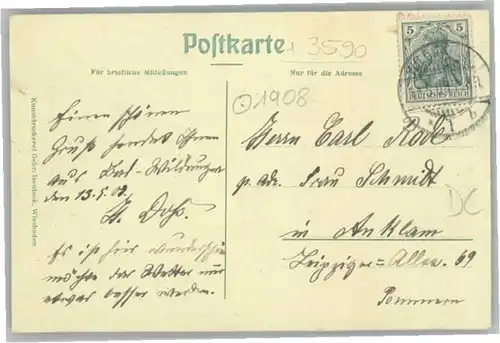 Postkarte
3590
Für briefliche Mitteilungen
Nur für die Adresse
5 5
DEUTSCHES REICH
1908
Einen schönen
Gruß sendet Ihnen
aus Bad-Wildungen
den 13.5.08.
Es ist hier wunderschön
möchte das Wetter nur
etwas besser werden.
Herrn Carl
p. adr. Frau Schmidt
in Anklam
Leipziger-Allee 69
Pommern
DC
Kunstdruckerei Gebr. Isenbeck, Wiesbaden